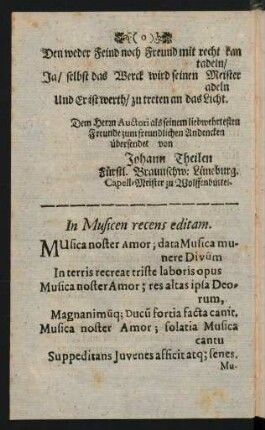 (o)
Den weder Feind noch Freund mit recht kan
tadeln/
Ja/ selbst das Werck wird seinen Meister
adeln
Und Er ist werth/ zu treten an das Licht.
Dem Herrn Auctori als seinem liebwehrtesten
Freunde zum freundlichen Andencken
übersendet von
Johann Theilen
Fürstl. Braunschw: Lüneburg.
Capell-Meister zu Wolffenbüttel.
In Musicen recens editam.
MUsica noster Amor; data Musica mu-
nere Divûm
In terris recreat triste laboris opus
Musica noster Amor; res altas ipsa Deo-
rum,
Magnanimûq; Ducû fortia facta canit.
Musica noster Amor; solatia Musica
cantu
Suppeditans Juvenes afficit atq; senes.
Mu-